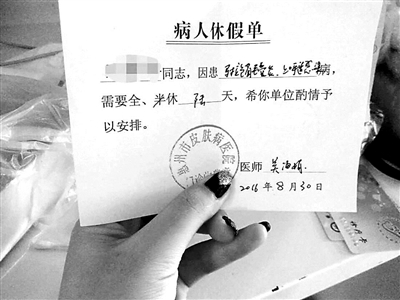 病人休假单
同志，因患 病，
需要全、半休 陆 天，希你单位酌情予
以安排。
惠州市皮肤病医院
医师 吴
2016年8月30日